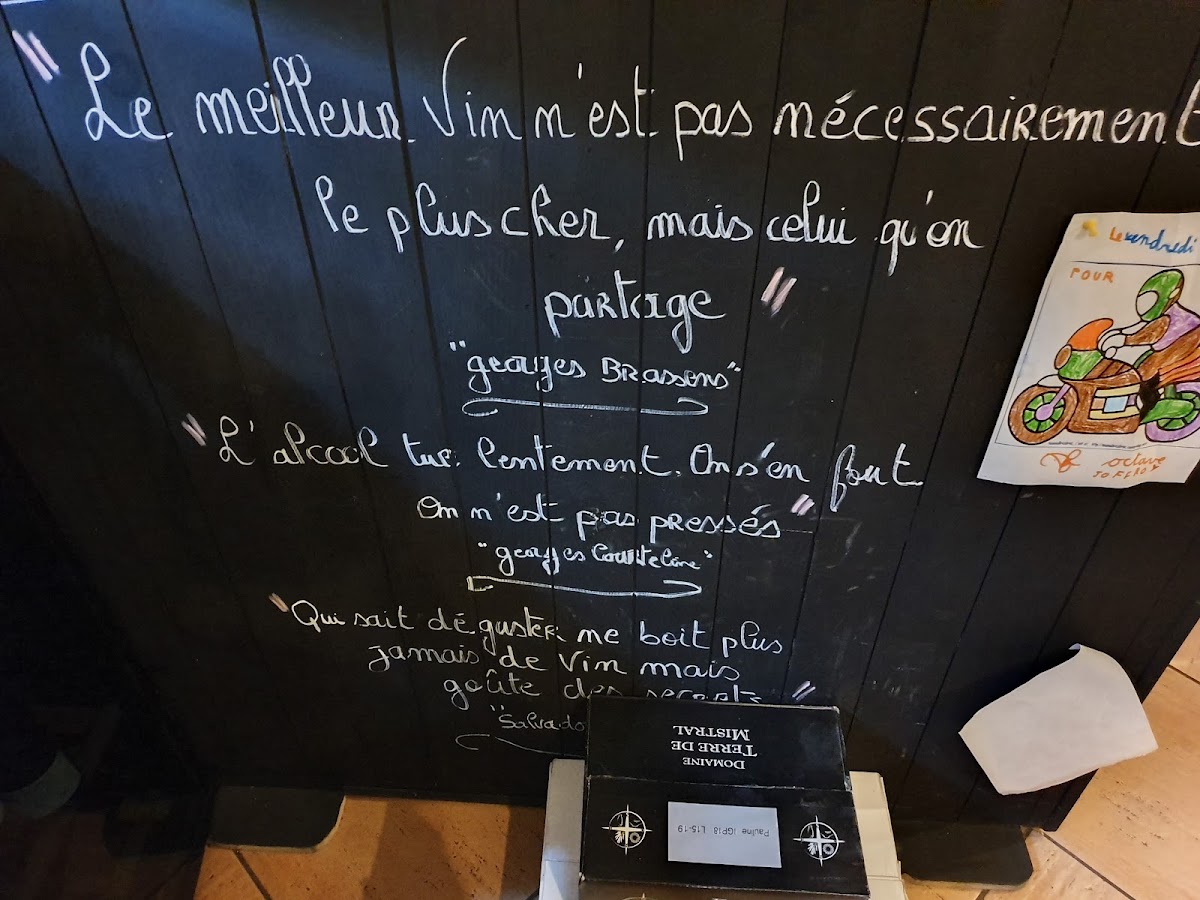 "Le meilleur Vin n'est pas nécessairement
le plus cher, mais celui qu'on
partage"
"georges BRassens"
"L'alcool tue lentement. On s'en fout
On n'est pas pressés"
"georges Courteline"
"Qui sait déguster ne boit plus
jamais de Vin mais
goûte des secrets"
"Salvado
Le vendredi
POUR
octave
DOMAINE
TERRE DE
MISTRAL
Pauline IGP18 L15-19